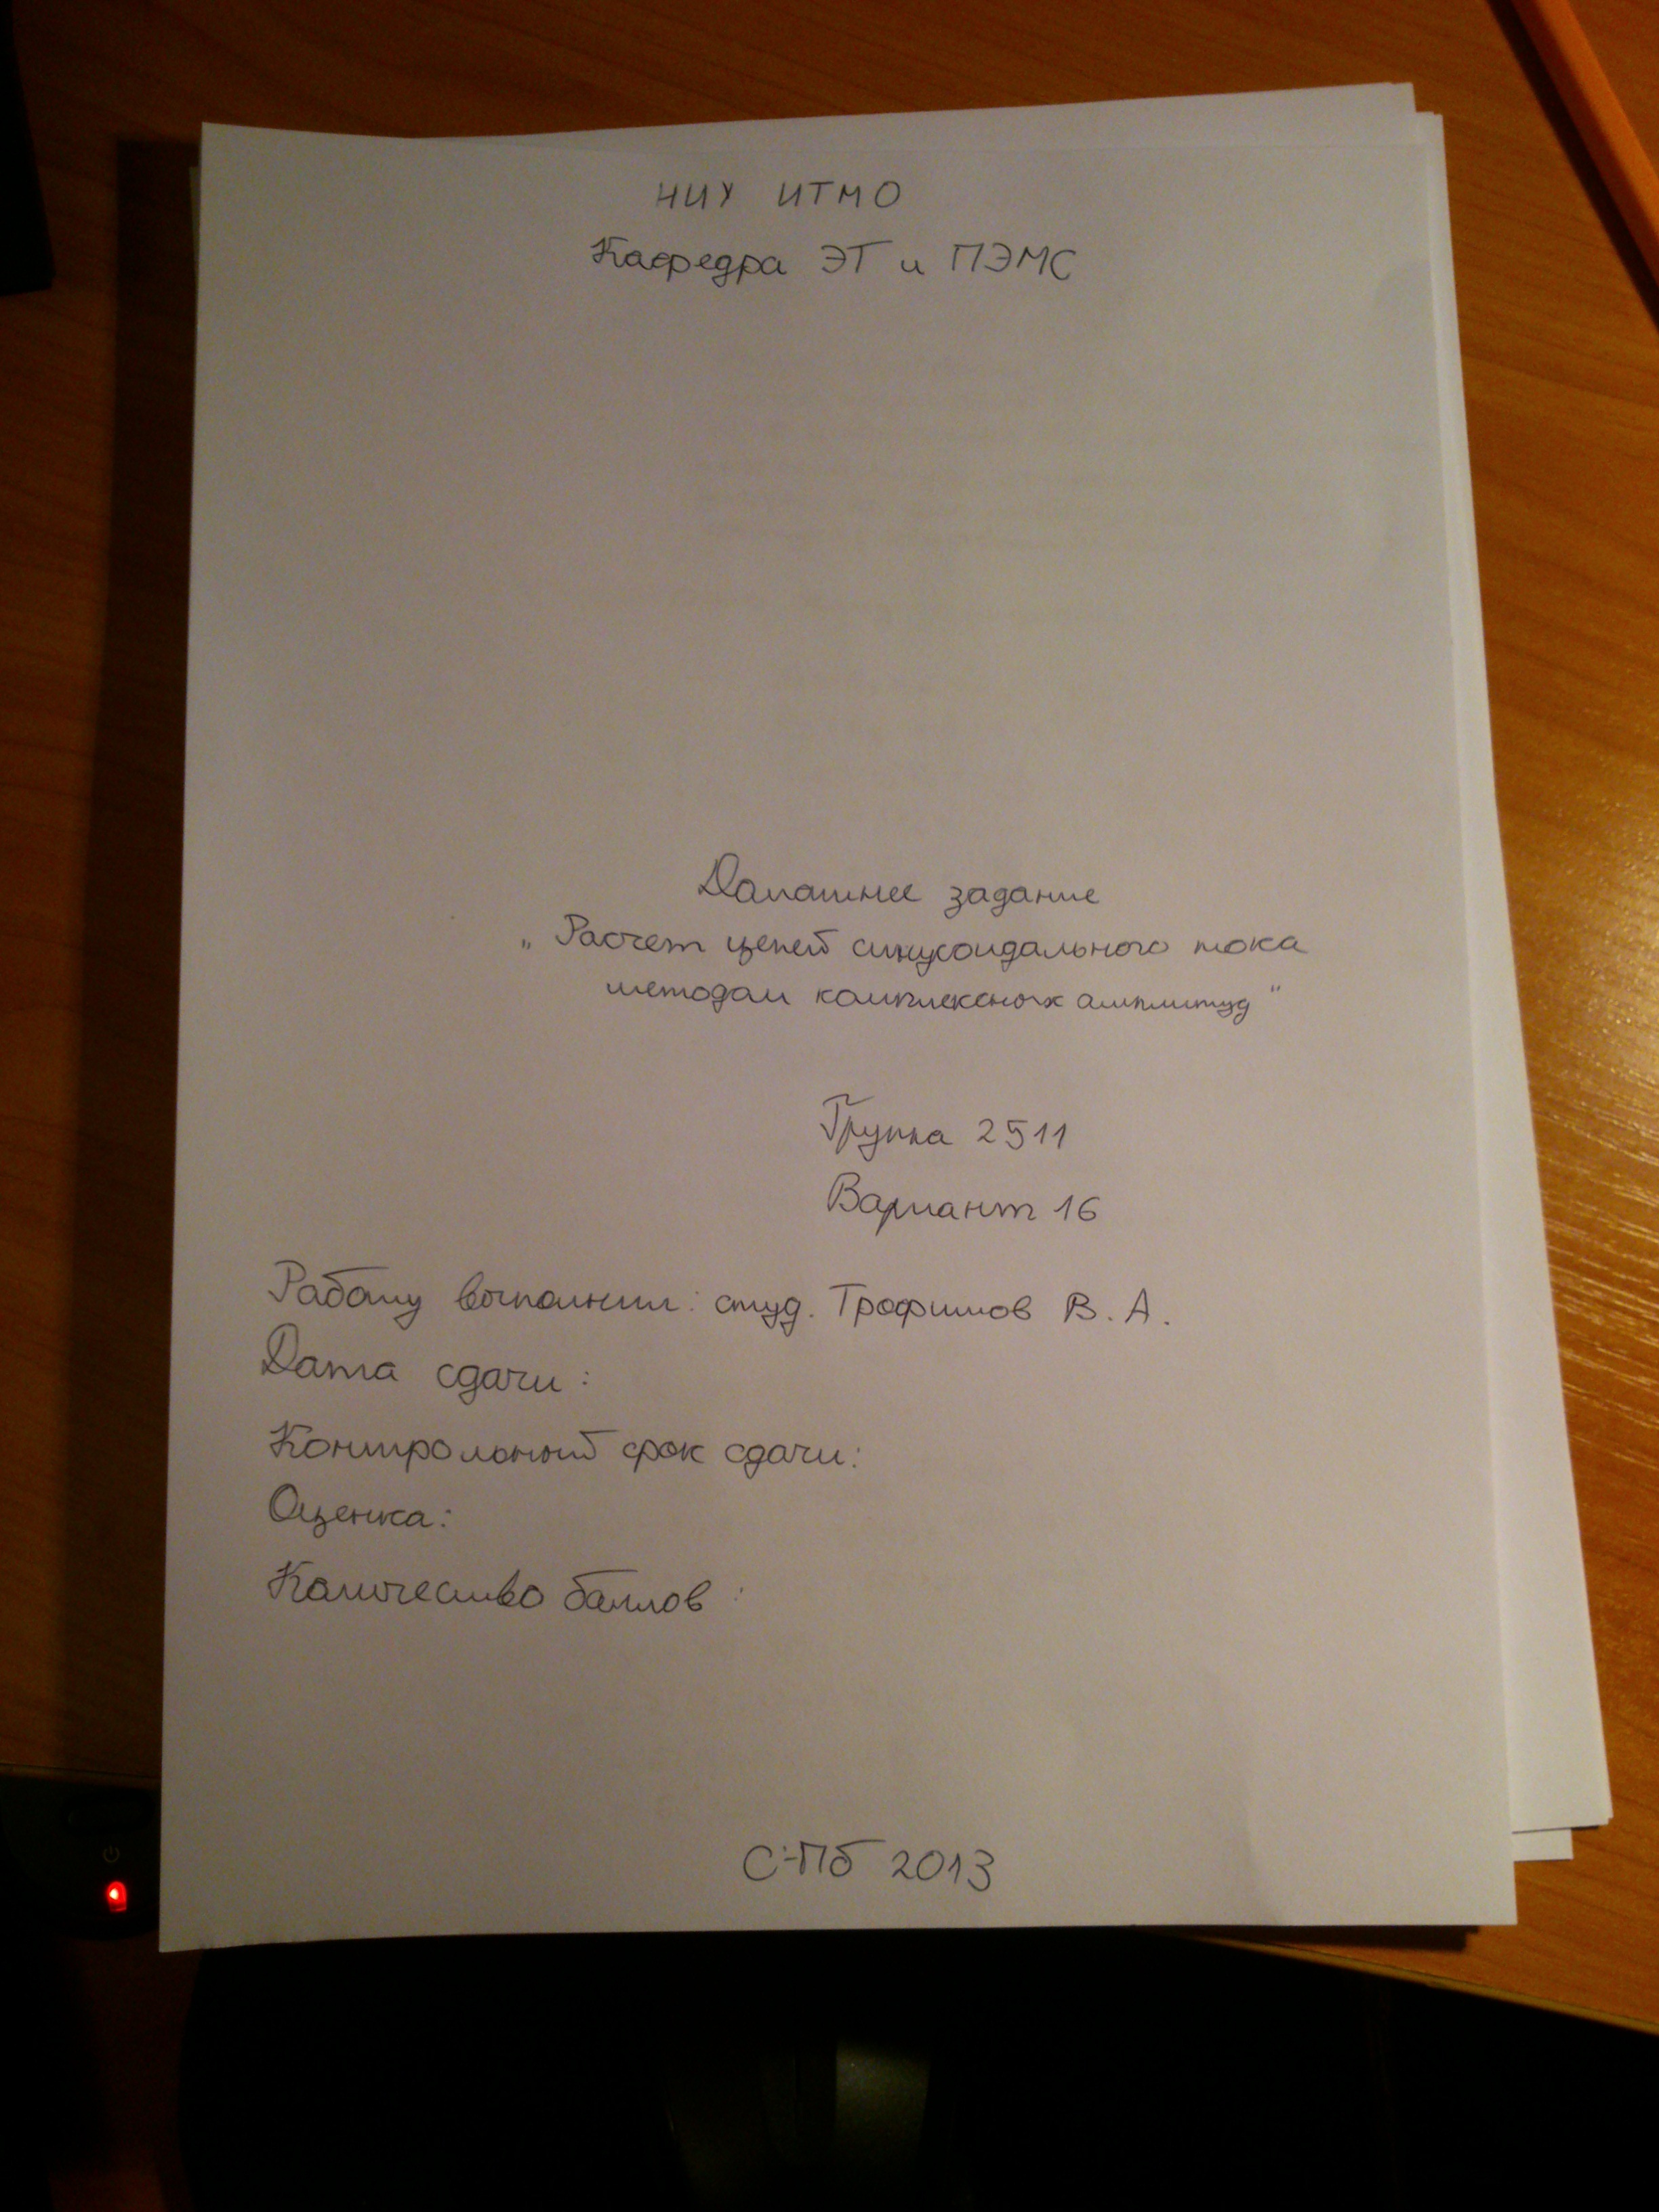 НИУ ИТМО
Кафедра ЭТ и ПЭМС
Домашнее задание
„Расчет цепей синусоидального тока
методом комплексных амплитуд"
Группа 2511
Вариант 16
Работу выполнил: студ. Трофимов В. А.
Дата сдачи:
Контрольный срок сдачи:
Оценка:
Количество баллов:
С-Пб 2013